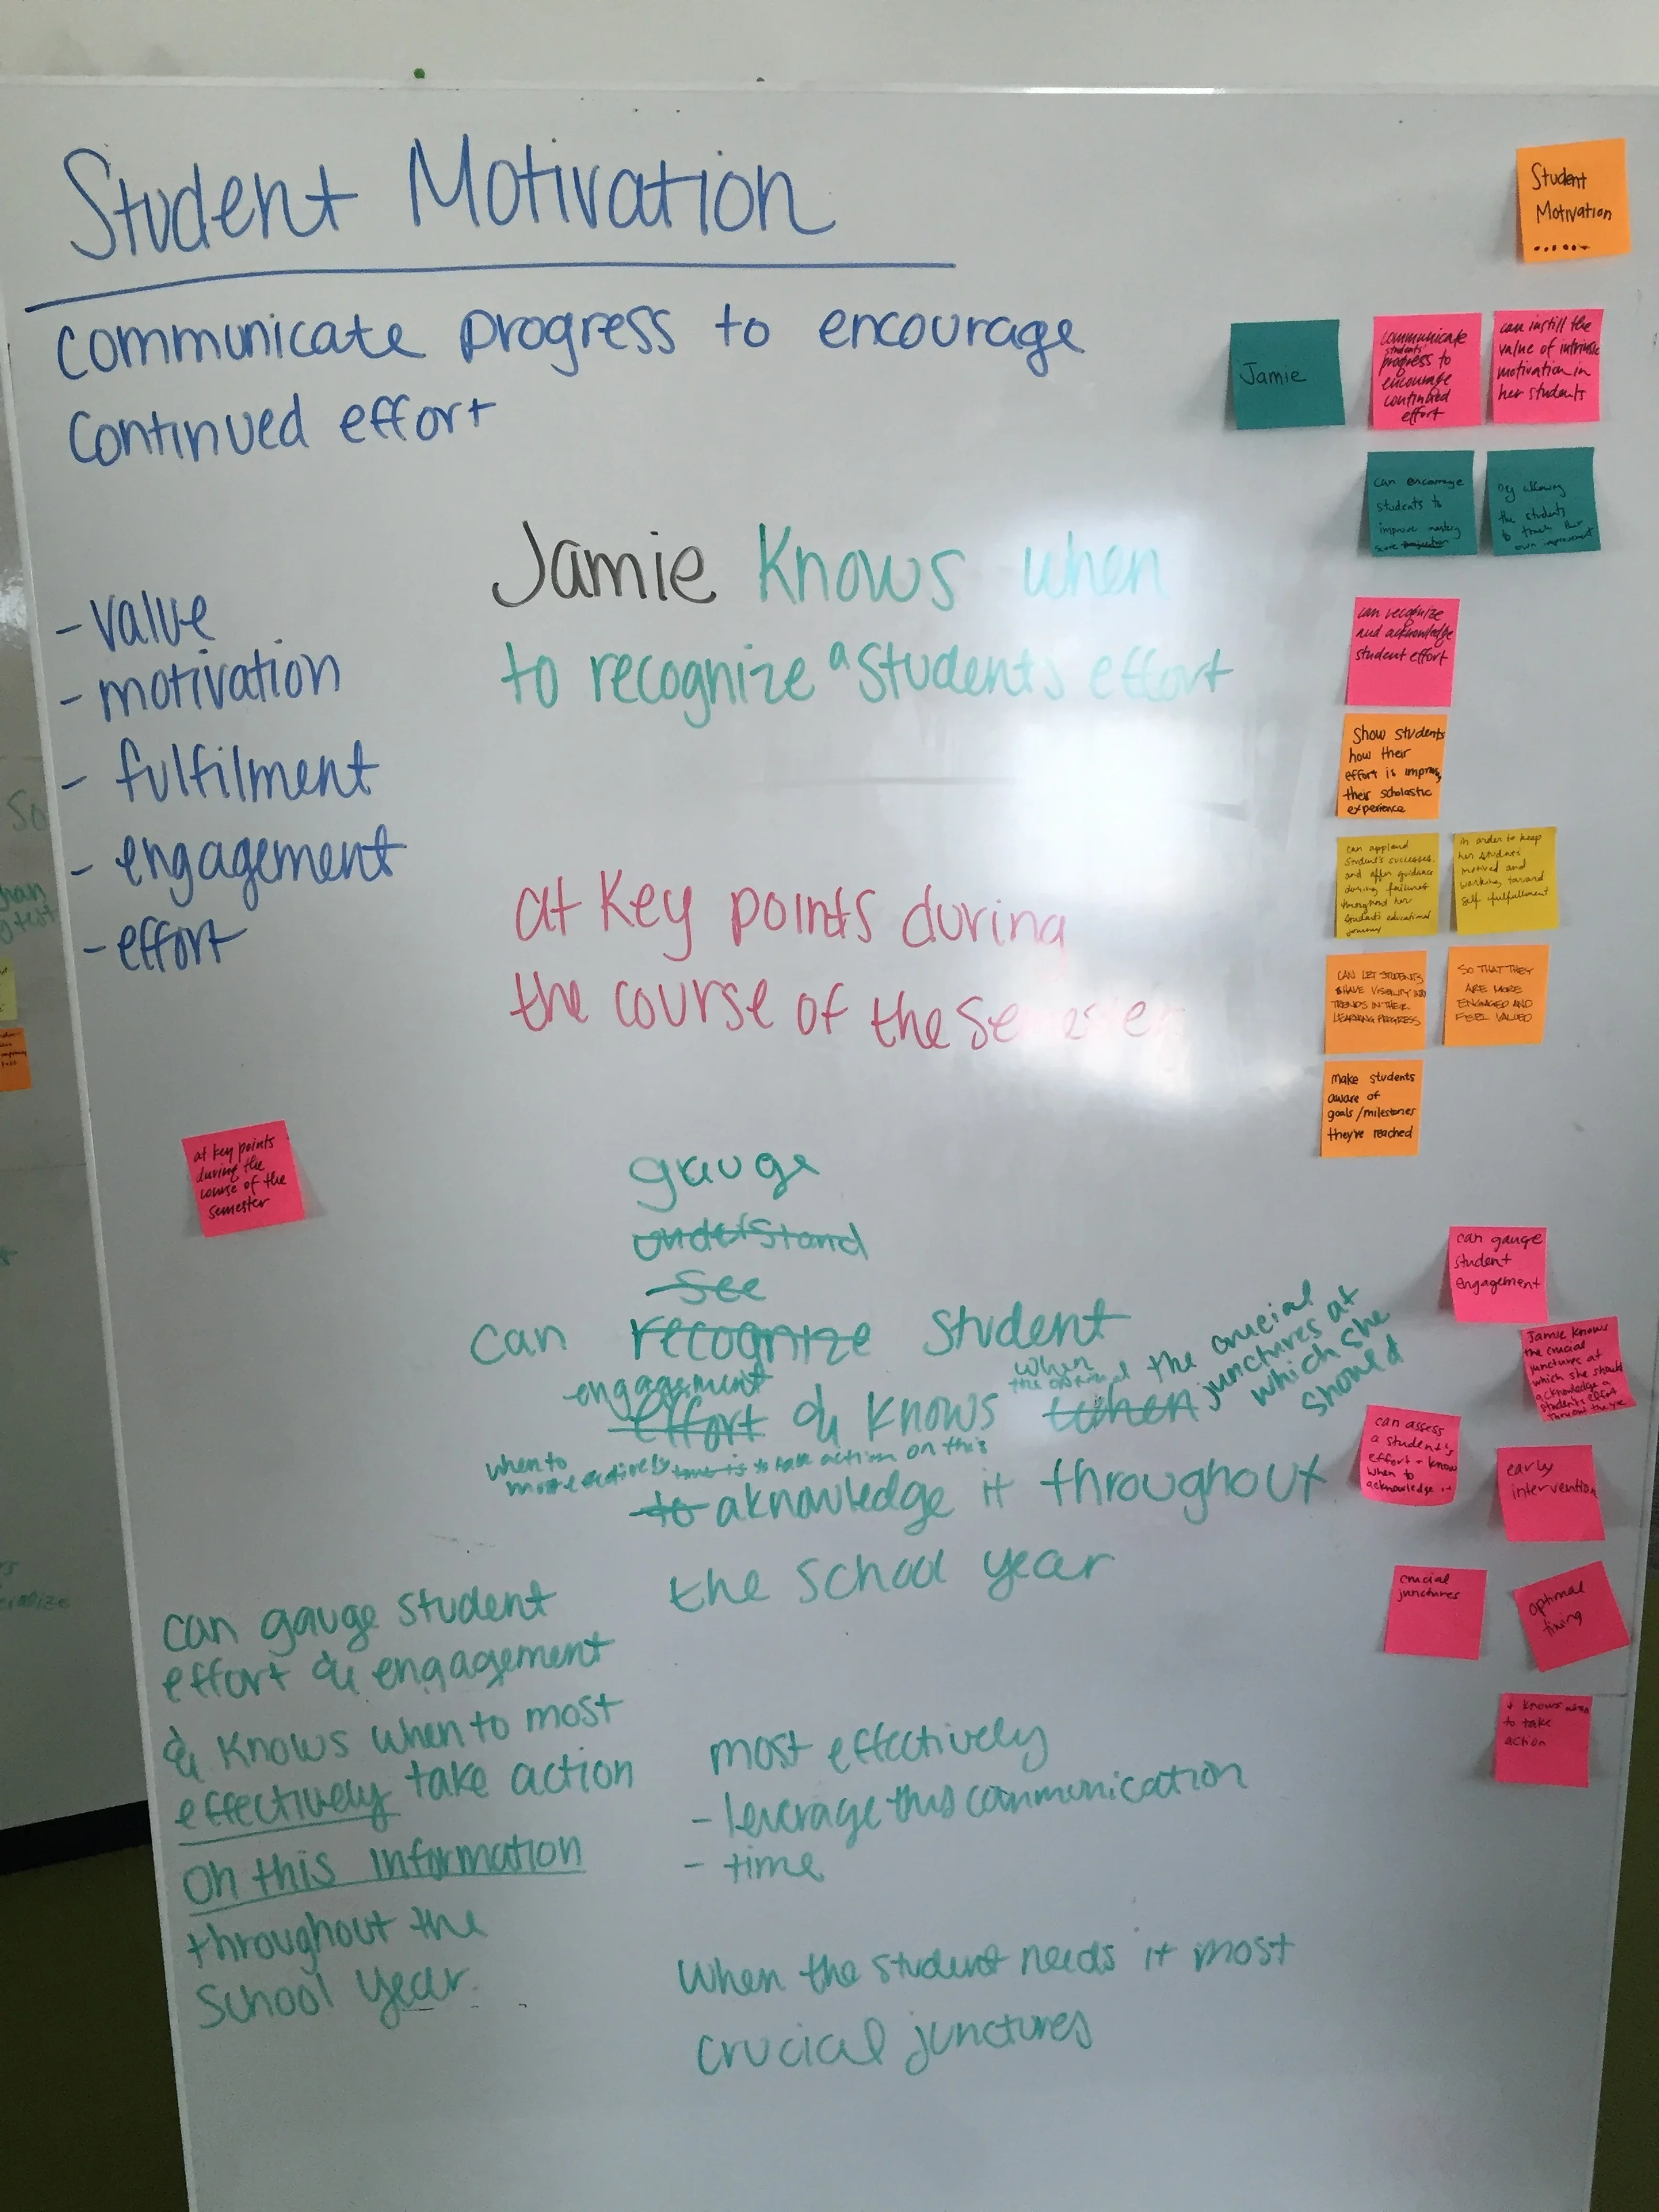 Student Motivation
communicate progress to encourage
continued effort
- value
- motivation
- fulfilment
- engagement
- effort
Jamie knows when
to recognize a students effort
at key points during
the course of the semester
at key points
during the
course of the
semester
gauge
understand
see
can recognize student
engagement
effort & knows when
when
the optimal
the crucial
junctures at
which she
should
when to
more actively
to take action on this
to aknowledge it throughout
the school year
can gauge student
effort & engagement
& knows when to most
effectively take action
on this information
throughout the
school year.
most effectively
- leverage this communication
- time
when the student needs it most
crucial junctures
Student
Motivation
......
Jamie
communicate
students'
progress to
encourage
continued
effort
can instill the
value of intrinsic
motivation in
her students
can encourage
students to
improve mastery
score projection
by allowing
the students
to track their
own improvement
can recognize
and acknowledge
student effort
Show students
how their
effort is improving
their scholastic
experience
can applaud
student's successes
and offer guidance
during failures
throughout her
student's educational
journey
in order to keep
her students
motived and
working toward
self fulfullment
CAN LET STUDENTS
HAVE VISIBILITY INTO
TRENDS IN THEIR
LEARNING PROGRESS
SO THAT THEY
ARE MORE
ENGAGED AND
FEEL VALUED
make students
aware of
goals/milestones
they've reached
can gauge
student
engagement
Jamie knows
the crucial
junctures at
which she should
acknowledge a
students effort
can assess
a student's
effort + know
when to
acknowledge it
early
intervention
crucial
junctures
optimal
timing
+ knows when
to take
action